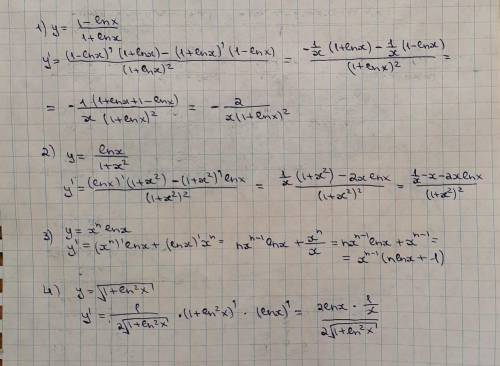 1) y = (1-lnx)/(1+lnx)
y' = ((1-lnx)' (1+lnx) - (1+lnx)' (1-lnx))/(1+lnx)² = (-1/x (1+lnx) - 1/x (1-lnx))/(1+lnx)² =
= - 1(1+lnx+1-lnx)/(x (1+lnx)²) = - 2/(x(1+lnx)²)
2) y = lnx/(1+x²)
y' = ((lnx)' (1+x²) - (1+x²)' lnx)/(1+x²)² = (1/x (1+x²) - 2x lnx)/(1+x²)² = (1/x - x - 2x lnx)/(1+x²)²
3) y = xⁿ lnx
y' = (xⁿ)' lnx + (lnx)' xⁿ = nxⁿ⁻¹ lnx + xⁿ/x = nxⁿ⁻¹ lnx + xⁿ⁻¹ =
= xⁿ⁻¹ (n lnx + 1)
4) y = √(1+ln²x)
y' = 1/(2√(1+ln²x)) · (1+ln²x)' · (lnx)' = (2lnx · 1/x)/(2√(1+ln²x))